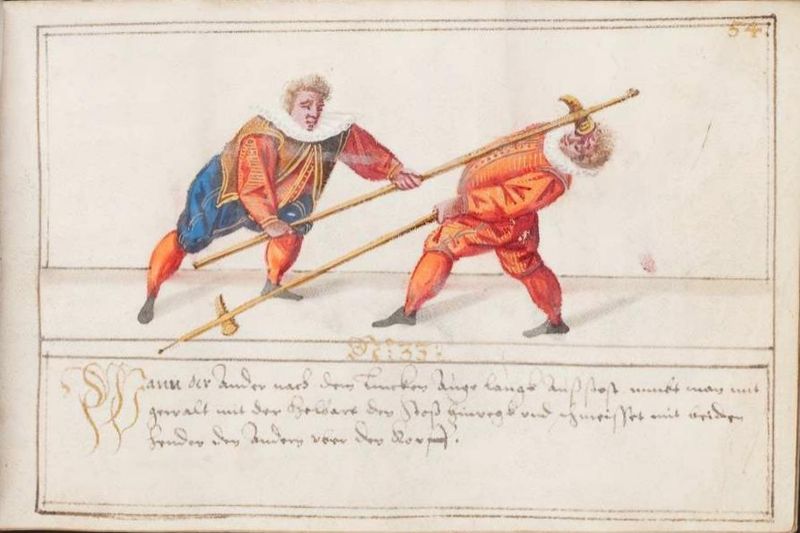 54
Nr: 33:
Wann der Ander nach dem lincken Auge langs Außstost nimbt man mit
gewalt mit der Helbart den stoß hinwegk und schmeisset mit beiden
henden den Andern uber den Kopff.